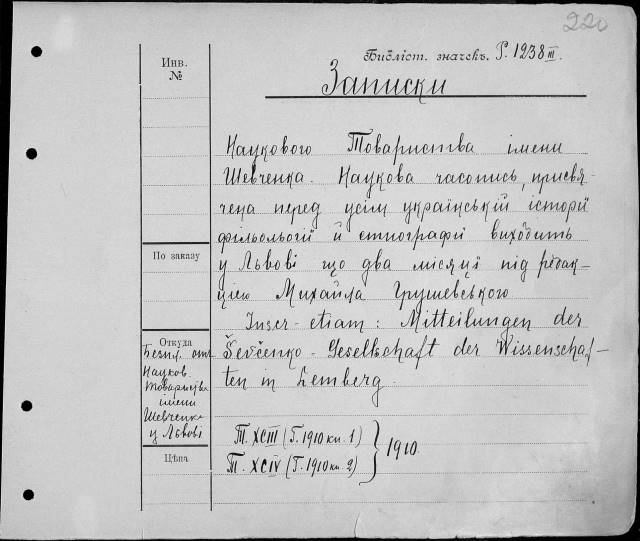 220
Инв.
№
Библіот. значекъ. P. 1238 III.
Записки
Наукового Товариства імени
Шевченка. Наукова часопись, присвя-
чена перед усім українській історії
фільольогії й етнографії виходить
у Львові що два місяці під редак-
цією Михайла Грушевського
По заказу
Inscr. etiam: Mitteilungen der
Ševčenko-Gesellschaft der Wissenschaf-
ten in Lemberg.
Откуда
Безпл. отъ
Науков.
Товариства
імени
Шевченка
у Львові
Цѣна
Т. XCIII (Г. 1910 кн. 1)
Т. XCIV (Г. 1910 кн. 2)
1910.